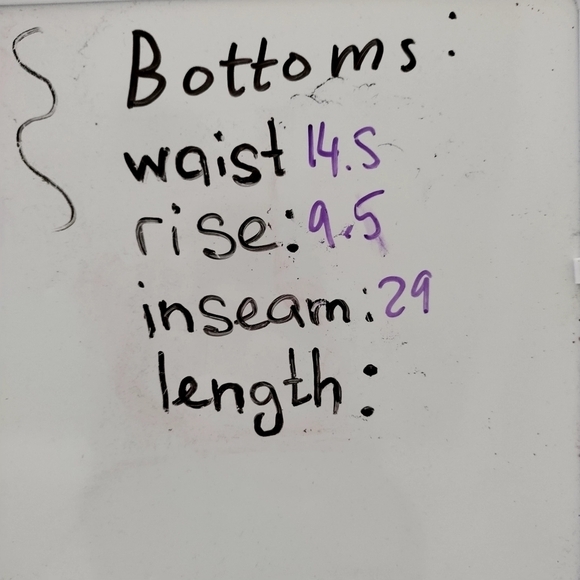 Bottoms:
waist 14.5
rise: 9.5
inseam: 29
length: